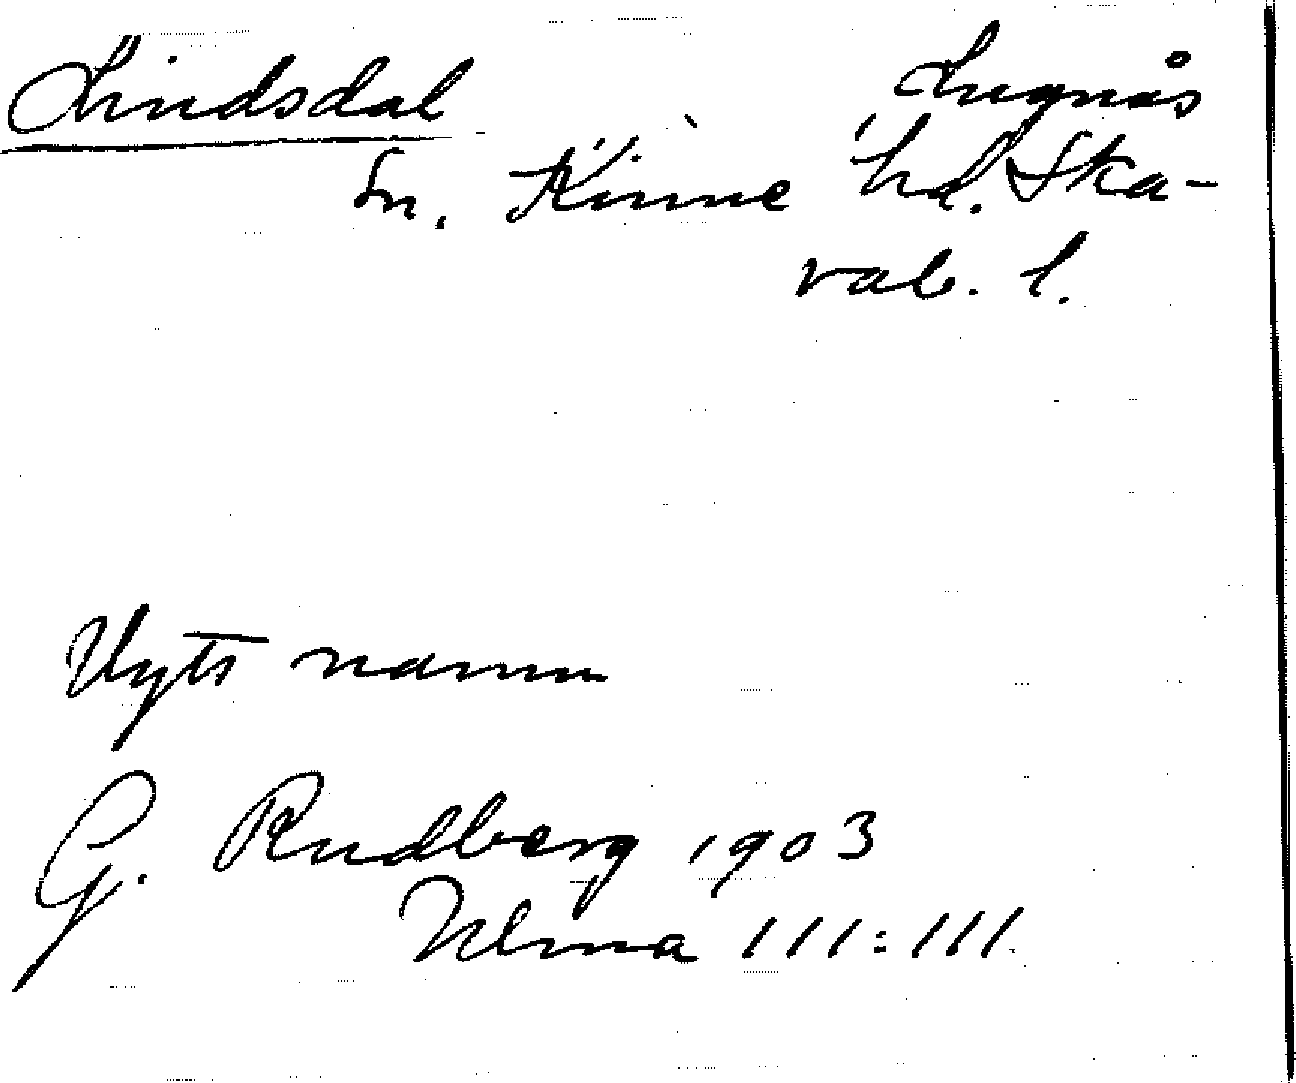 Lindsdal Lugnås
sn. Kinne hd. Ska-
rab. l.
Nytt namn
G. Rudberg 1903
Ulma 111:111.